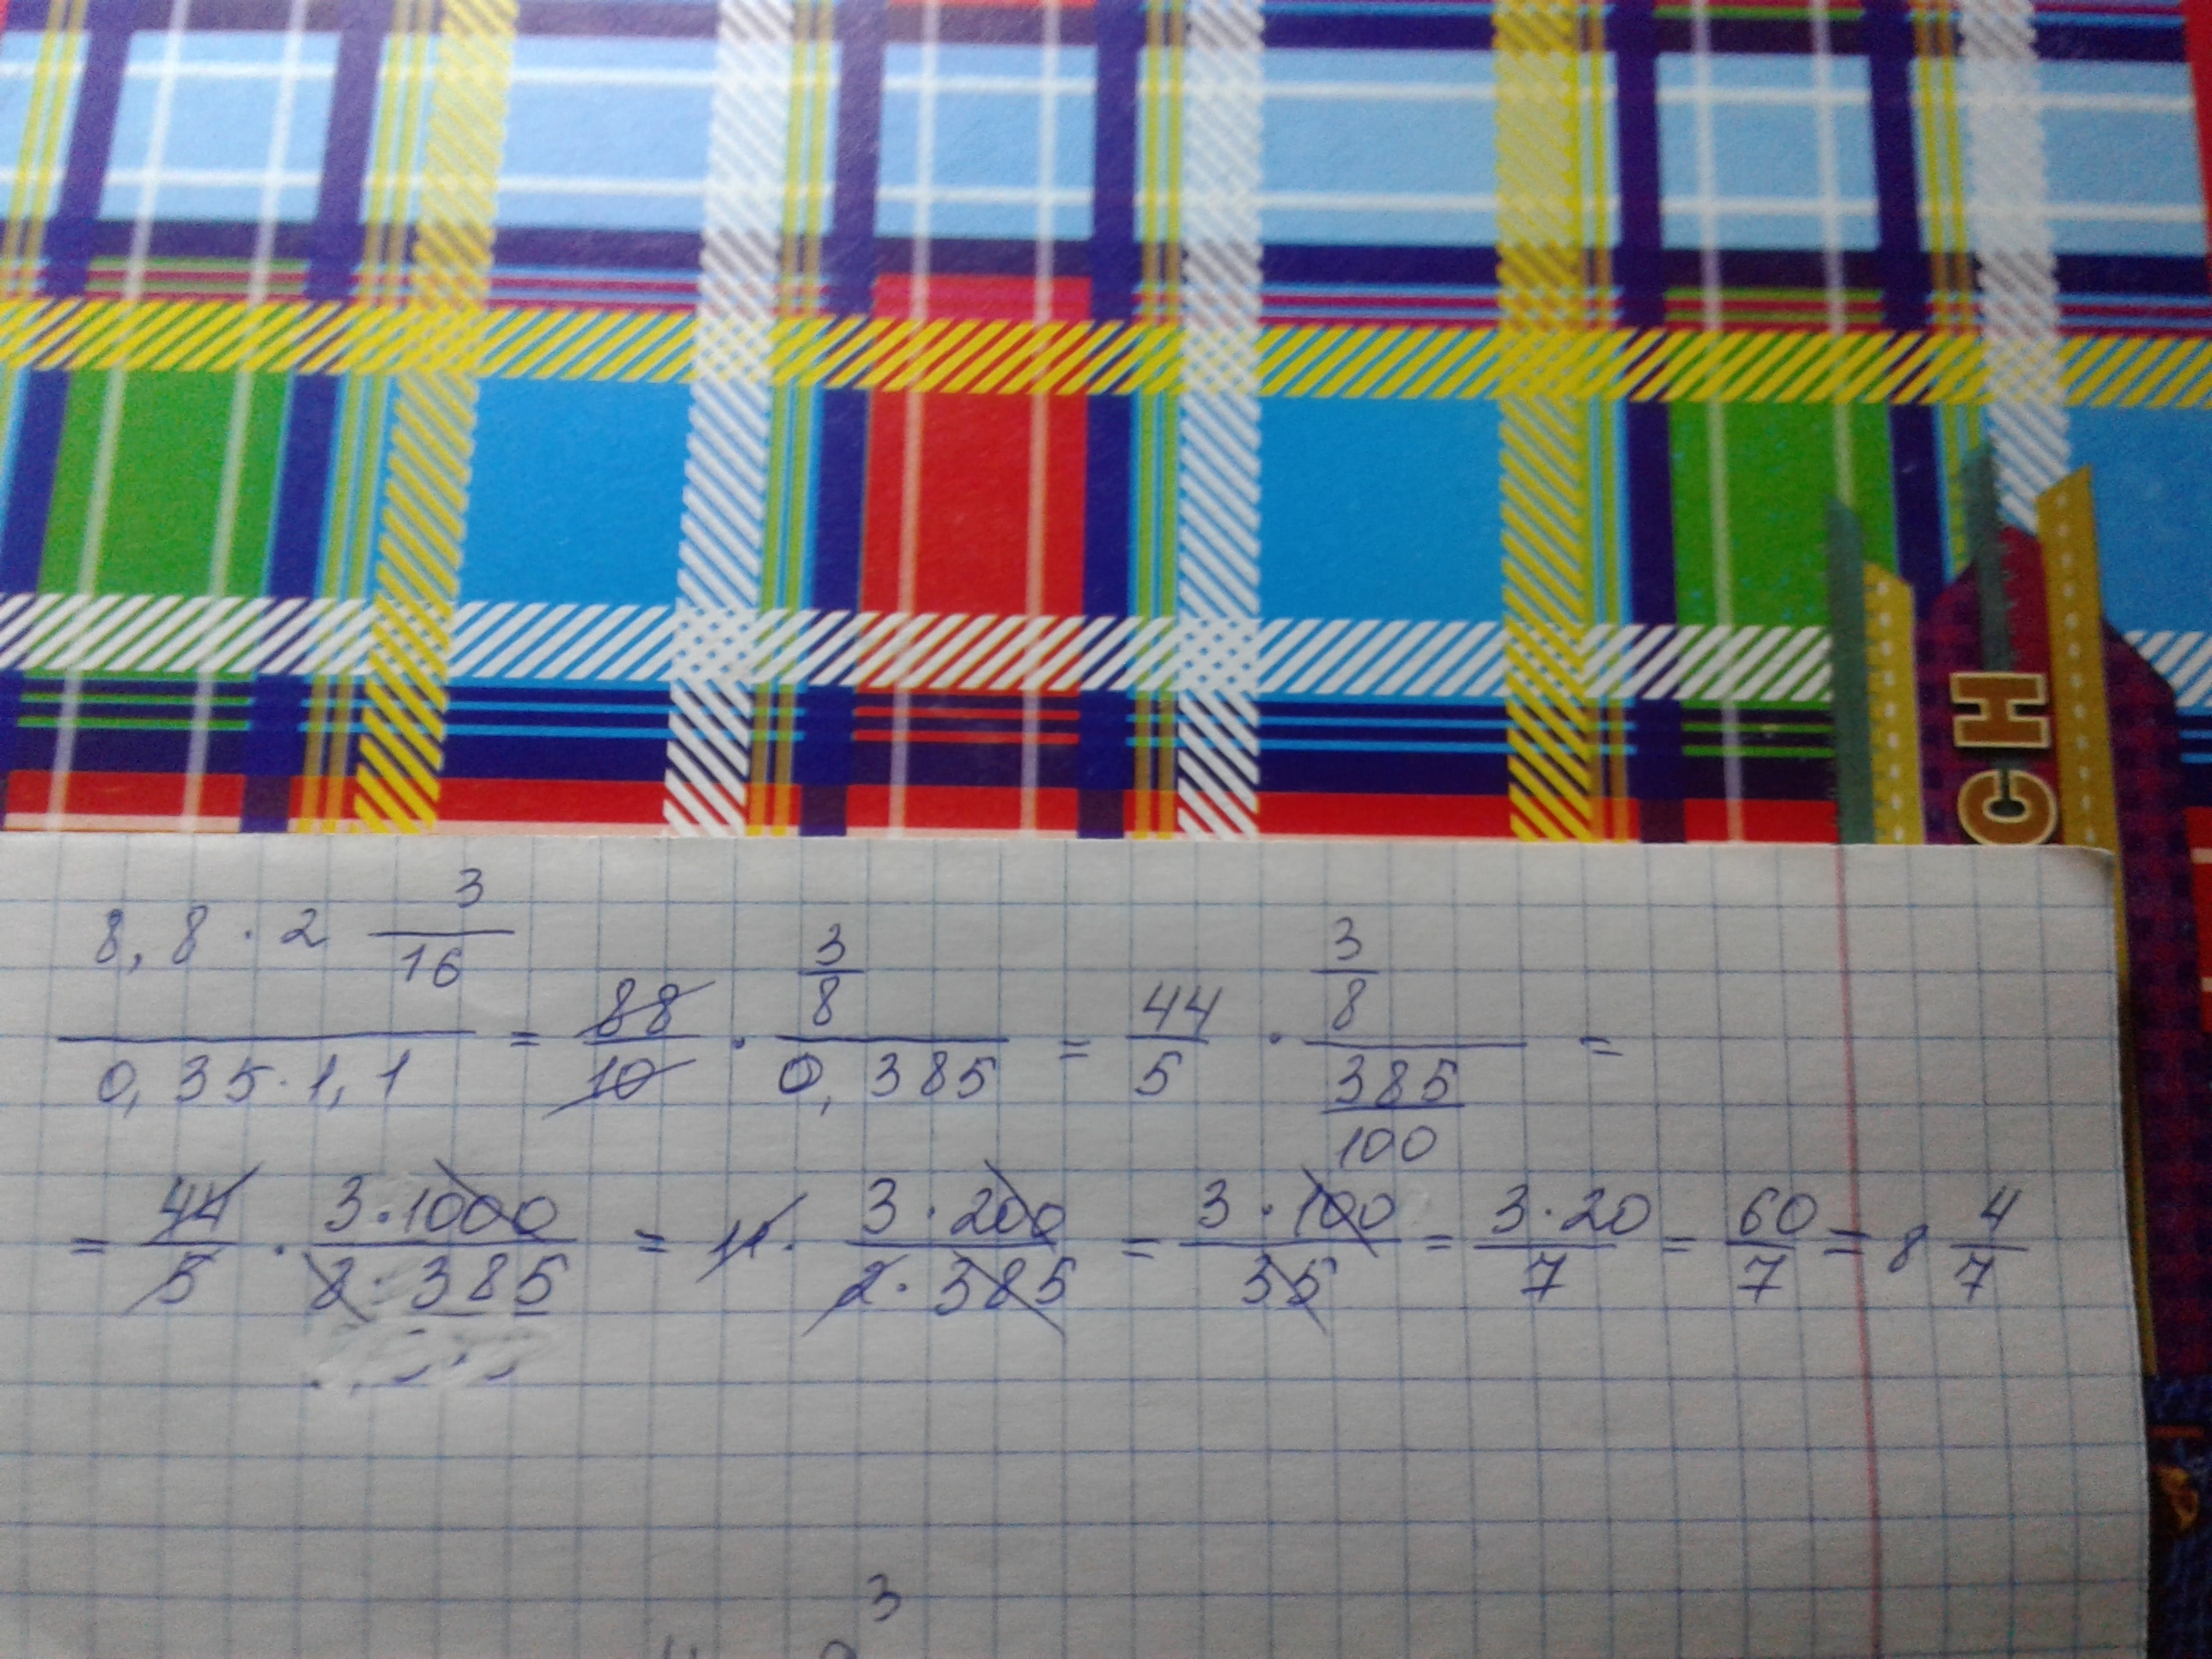 CH
(8,8 · 2 3/16) / (0,35 · 1,1) = 88/10 · (3/8) / 0,385 = 44/5 · (3/8) / (385/100) =
= 44/5 · (3 · 1000) / (8 · 385) = 11 · (3 · 200) / (2 · 385) = (3 · 100) / 35 = (3 · 20) / 7 = 60/7 = 8 4/7
3